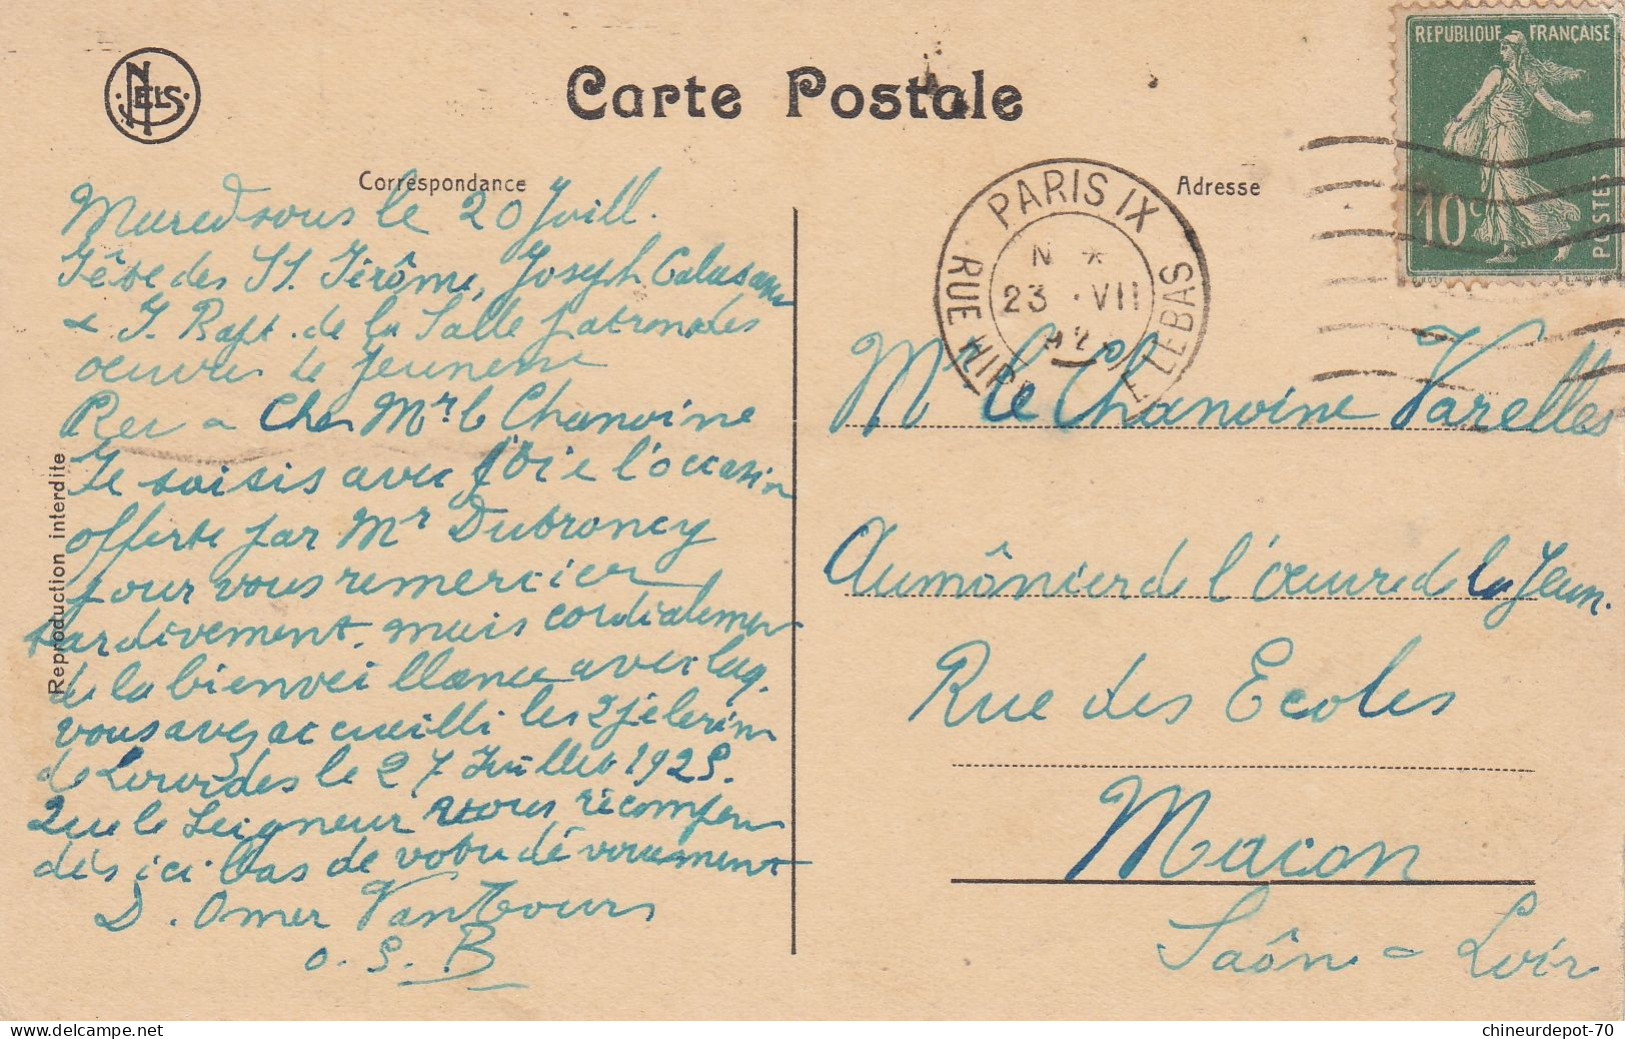 NELS
Carte Postale
REPUBLIQUE FRANÇAISE
10c
POSTES
Correspondance
Adresse
PARIS IX
RUE HIPPLTE LEBAS
N *
23 · VII
Reproduction interdite
Maredsous le 20 Juill.
Fête des SS. Jérôme, Joseph Calasanz
& J. Bapt. de la Salle patrons des
œuvres de jeunesse
Cher Mr le Chanoine
Je saisis avec joie l'occasion
offerte par Mr Dubroncy
pour vous remercier
tardivement, mais cordialement
de la bienveillance avec laq.
vous avez accueilli les 2 pèlerins
de Lourdes le 27 Juillet 1925.
Que le Seigneur vous récompense
dès ici bas de votre dévouement
D. Omer Vantours
O. S. B
Mr le Chanoine Varelles
Aumônier de l'œuvre de la Jeun.
Rue des Ecoles
Macon
Saône = Loire
chineurdepot-70